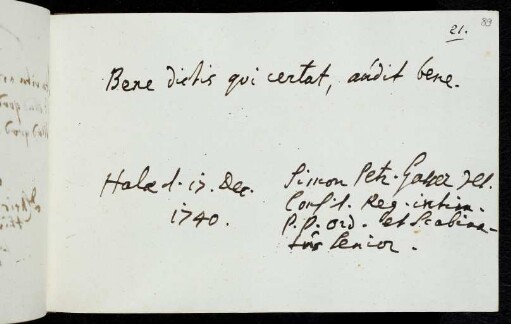 21.
89
Bene dictis qui certat, audit bene.
Halæ d. 17. Dec.
1740.
Simon Petr. Gasser
Consil. Reg. intim.
P. P. ord. et Scabina-
tus Senior.